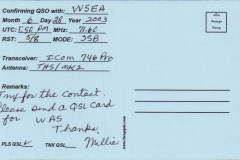 Confirming QSO with: W5EA
Month 6 Day 28 Year 2003
UTC: 1:50 PM MHz: 7.160
RST: 5/8 MODE: SSB
Transceiver: ICom 746 Pro
Antenna:
Tnx for the Contact.
Please send a QSL Card
for WAS
Thanks,
PLS QSL ✓ TNX QSL Millie